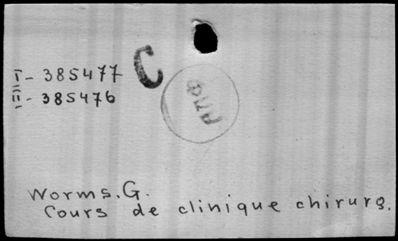 I - 385477
II - 385476
C
Worms. G.
Cours de clinique chirurg.